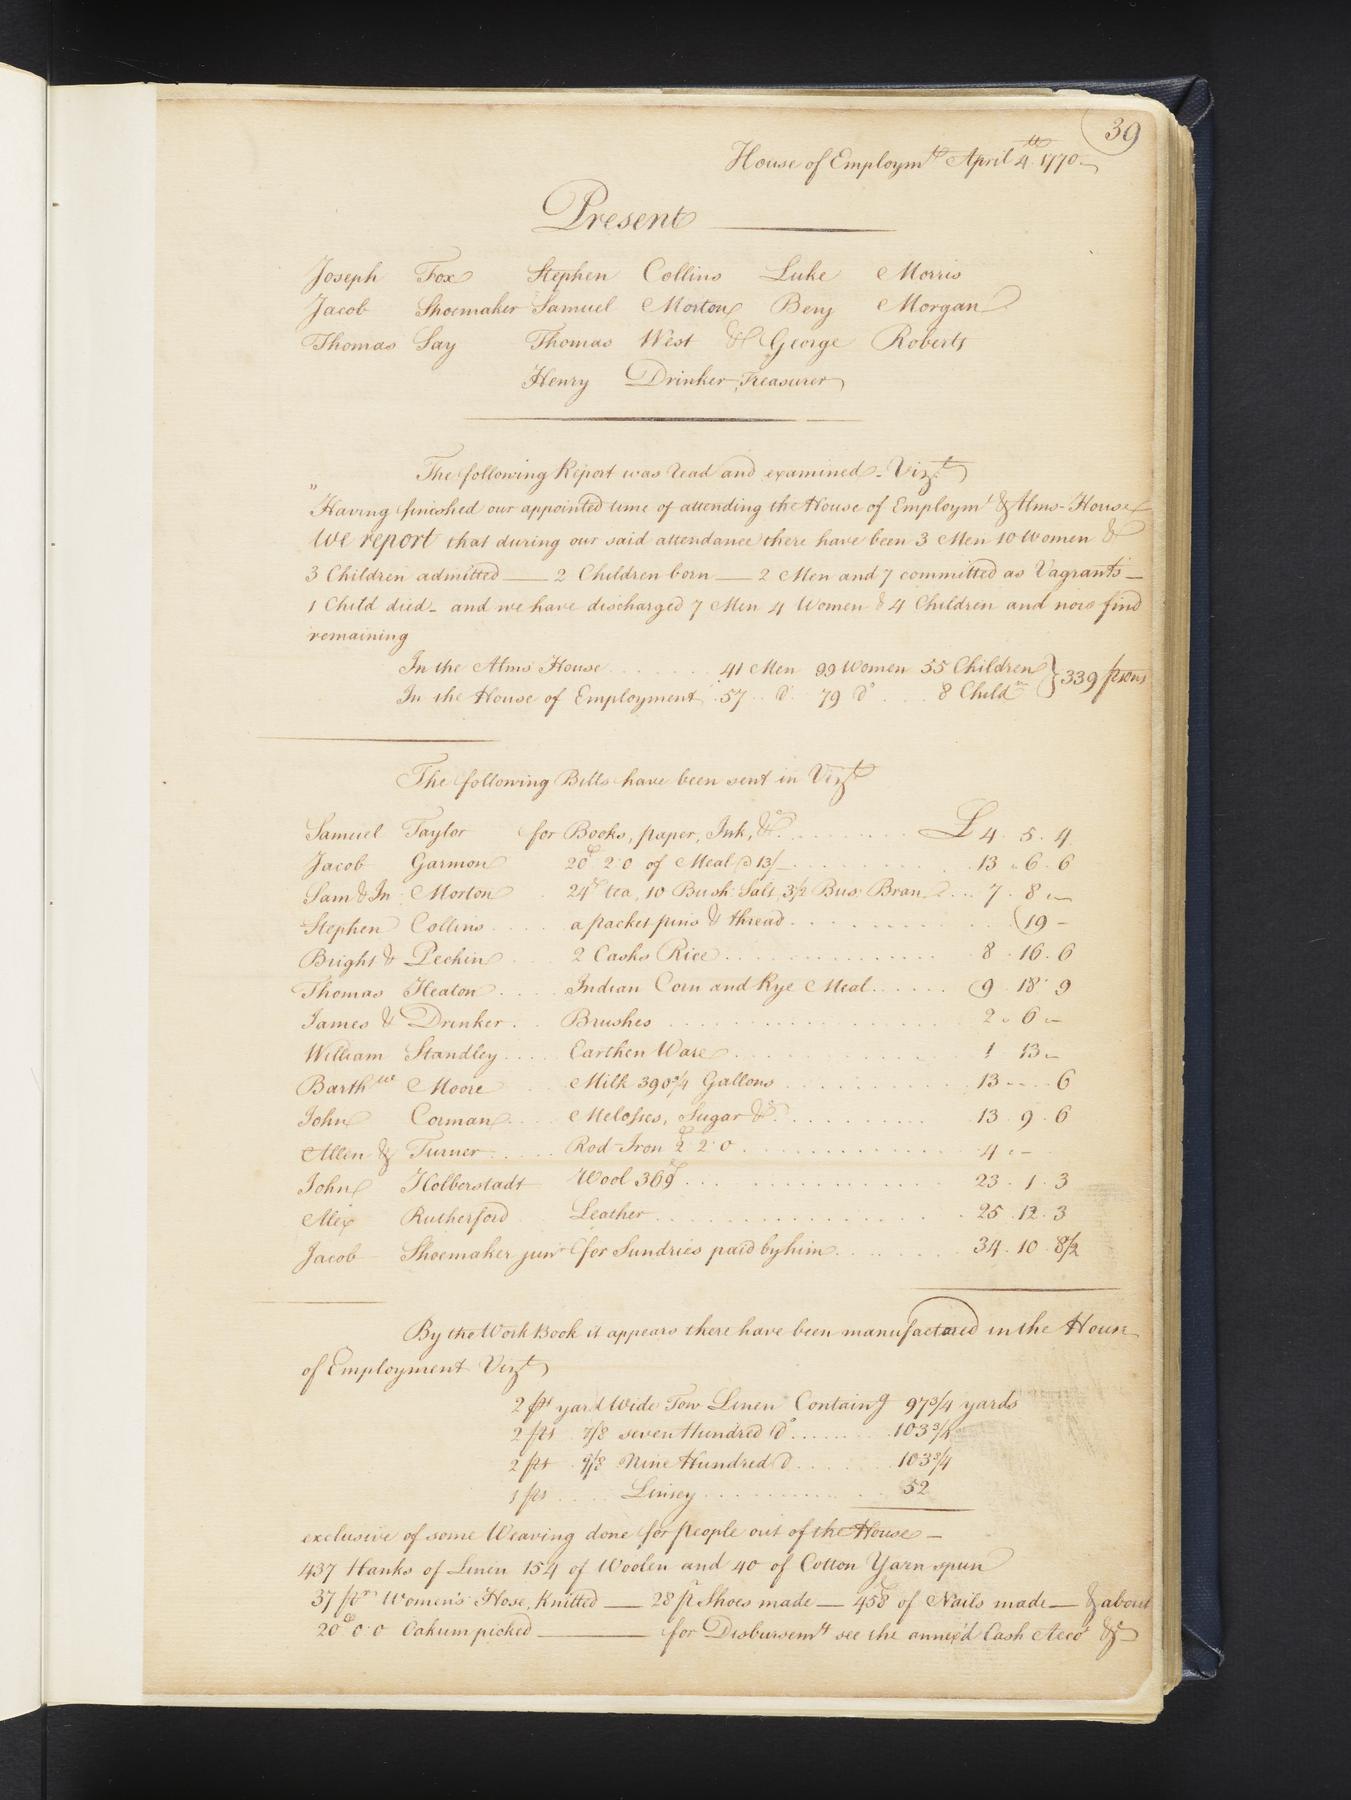 39
House of Employmt April 4th 1770
Present
Joseph Fox Stephen Collins Luke Morris
Jacob Shoemaker Samuel Morton Benj Morgan
Thomas Say Thomas West & George Roberts
Henry Drinker, Treasurer
The following Report was read and examined - Vizt
"Having finished our appointed time of attending the House of Employmt & Alms-House
We report that during our said attendance there have been 3 Men 10 Women &
3 Children admitted — 2 Children born — 2 Men and 7 committed as Vagrants —
1 Child died - and we have discharged 7 Men 4 Women & 4 Children and now find
remaining
In the Alms House . . . . . . . 41 Men 99 Women 55 Children } 339 psons
In the House of Employment . 57 . . do . . 79 do . . . . 8 Childn
The following Bills have been sent in Vizt
Samuel Taylor for Books, paper, Ink, &c . . . . . . . . . £ 4 . 5 . 4
Jacob Garmon 20C 2. 0 of Meal @ 13/ . . . . . . . . . 13 . 6 . 6
Sam & Jn Morton . 24lb tea, 10 Bush: Salt, 3 1/2 Bus: Bran . . . 7 . 8 . —
Stephen Collins . . . . a packet pins & thread . . . . . . . . . . . 19 -
Bright & Pechin . . . 2 Casks Rice . . . . . . . . . . . . . . . 8 . 16 . 6
Thomas Heaton . . . . Indian Corn and Rye Meal . . . . . . 9 . 18 . 9
James & Drinker . . . Brushes . . . . . . . . . . . . . . . . . . 2 . 6 . —
William Standley . . . . Earthen Ware . . . . . . . . . . . . . 1 13 . —
Barthw Moore Milk 390 3/4 Gallons . . . . . . . . . . 13 - - . . . 6
John Corman . . . . Melosses, Sugar &c . . . . . . . . . . 13 . 9 . 6
Allen & Turner . . . . . Rod-Iron 2C 2. 0 . . . . . . . . . . . . . 4 . —
John Holberstadt Wool 369lb . . . . . . . . . . . . . . 23 . 1 . 3
Alexr Rutherford Leather . . . . . . . . . . . . . . . . . . 25 . 12 . 3
Jacob Shoemaker junr for Sundries paid by him . . . . . . . 34 . 10 . 8 1/2
By the Work Book it appears there have been manufactored in the House
of Employment Vizt
2 ps yard Wide Tow Linen Containg 97 3/4 yards
2 ps 7/8 seven Hundred do . . . . . . . . 103 3/4
2 ps 9/8 Nine Hundred do . . . . . . . 103 3/4
1 ps . . . . Linsey . . . . . . . . . . . . 52
exclusive of some Weaving done for people out of the House —
437 Hanks of Linen 154 of Woolen and 40 of Cotton Yarn spun
37 pr Women's Hose, Knitted — 28 pr Shoes made — 45lb of Nails made — & about
20C 0. 0 Oakum picked — for Disbursemts see the annex'd Cash Acco &c